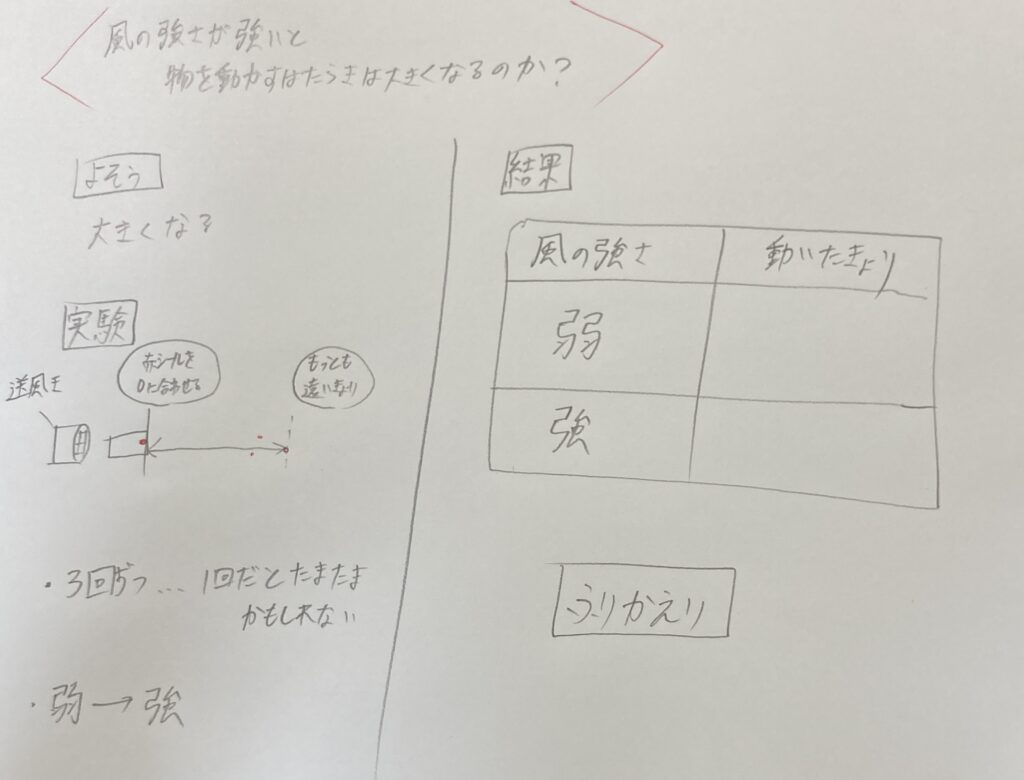 風の強さが強いと
物を動かすはたらきは大きくなるのか?
よそう
大きくなる
実験
送風き
赤シールを
0に合わせる
もっとも
遠いきょり
・3回ずつ…1回だとたまたま
かもしれない
・弱→強
結果
風の強さ 動いたきょり
弱
強
ふりかえり